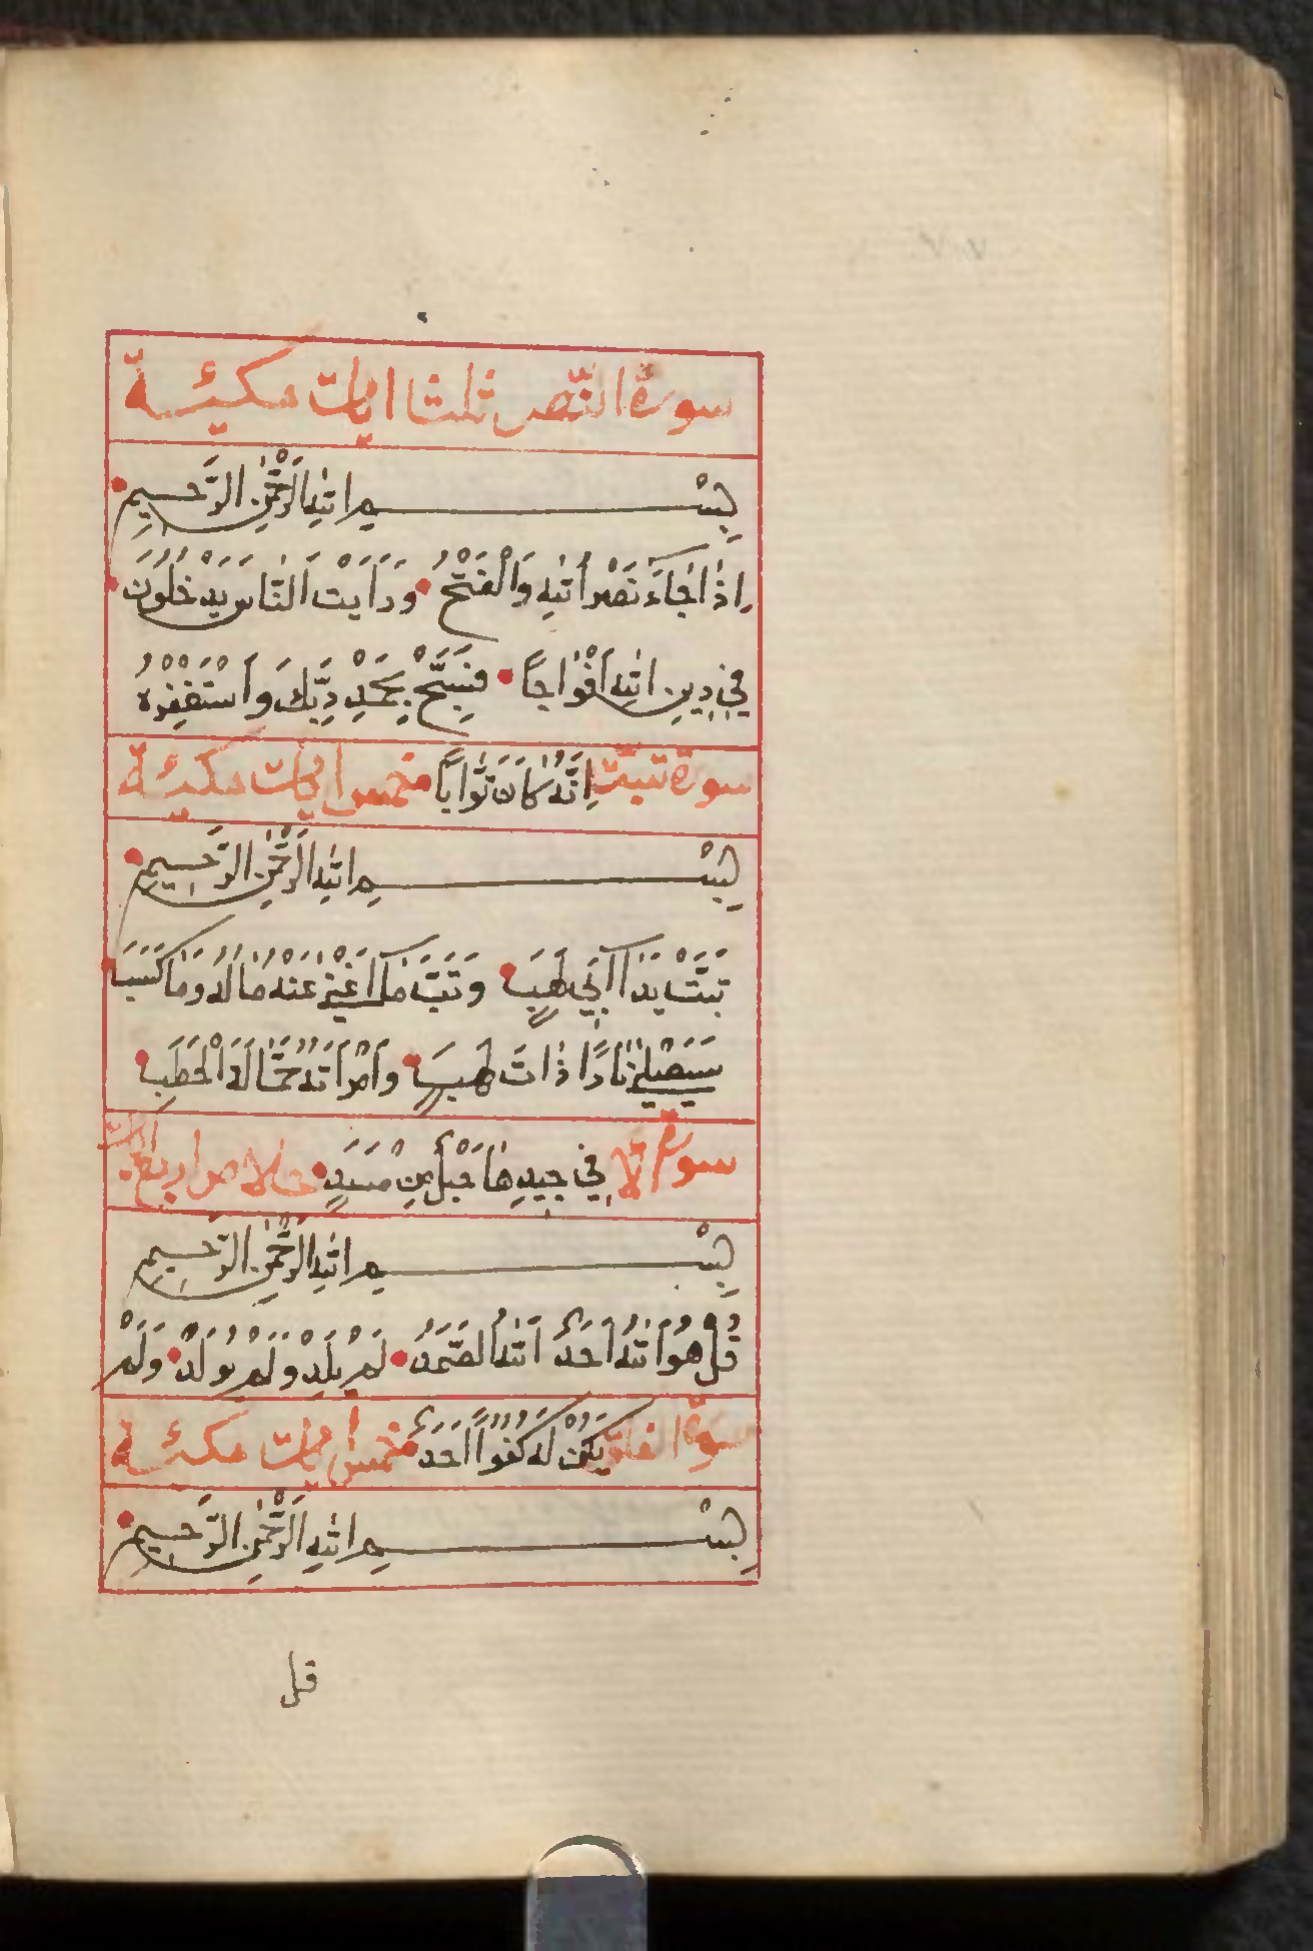 سورة النّصر ثلثا ايات مكيّة
بِسْم اللّٰهِ الرَّحْمٰنِ الرَّحِيمِ
اِذٰا جٰاءَ نَصْرُ اللّٰهِ وَالْفَتْحُ وَرَاَيْتَ النّٰاسَ يَدْخُلُونَ
فِي دِينِ اللّٰهِ اَفْوٰاجًا فَسَبِّحْ بِحَمْدِ رَبِّكَ وَاسْتَغْفِرْهُ
سورة تبّت اِنَّهُ كٰانَ تَوّٰابًا خمس ايات مكيّة
بِسْم اللّٰهِ الرَّحْمٰنِ الرَّحِيمِ
تَبَّتْ يَدٰا اَبِي لَهَبٍ وَتَبَّ مٰا اَغْنٰى عَنْهُ مٰالُهُ وَمٰا كَسَبَ
سَيَصْلٰى نٰارًا ذٰاتَ لَهَبٍ وَامْرَاَتُهُ حَمّٰالَةَ الْحَطَبِ
سورة الا فِي جِيدِهٰا حَبْلٌ مِنْ مَسَدٍ خلاص اربع ايات
بِسْم اللّٰهِ الرَّحْمٰنِ الرَّحِيمِ
قُلْ هُوَ اللّٰهُ اَحَدٌ اَللّٰهُ الصَّمَدُ لَمْ يَلِدْ وَلَمْ يُولَدْ وَلَمْ
سورة الفلق يَكُنْ لَهُ كُفُوًا اَحَدٌ خمس ايات مكيّة
بِسْم اللّٰهِ الرَّحْمٰنِ الرَّحِيمِ
قل